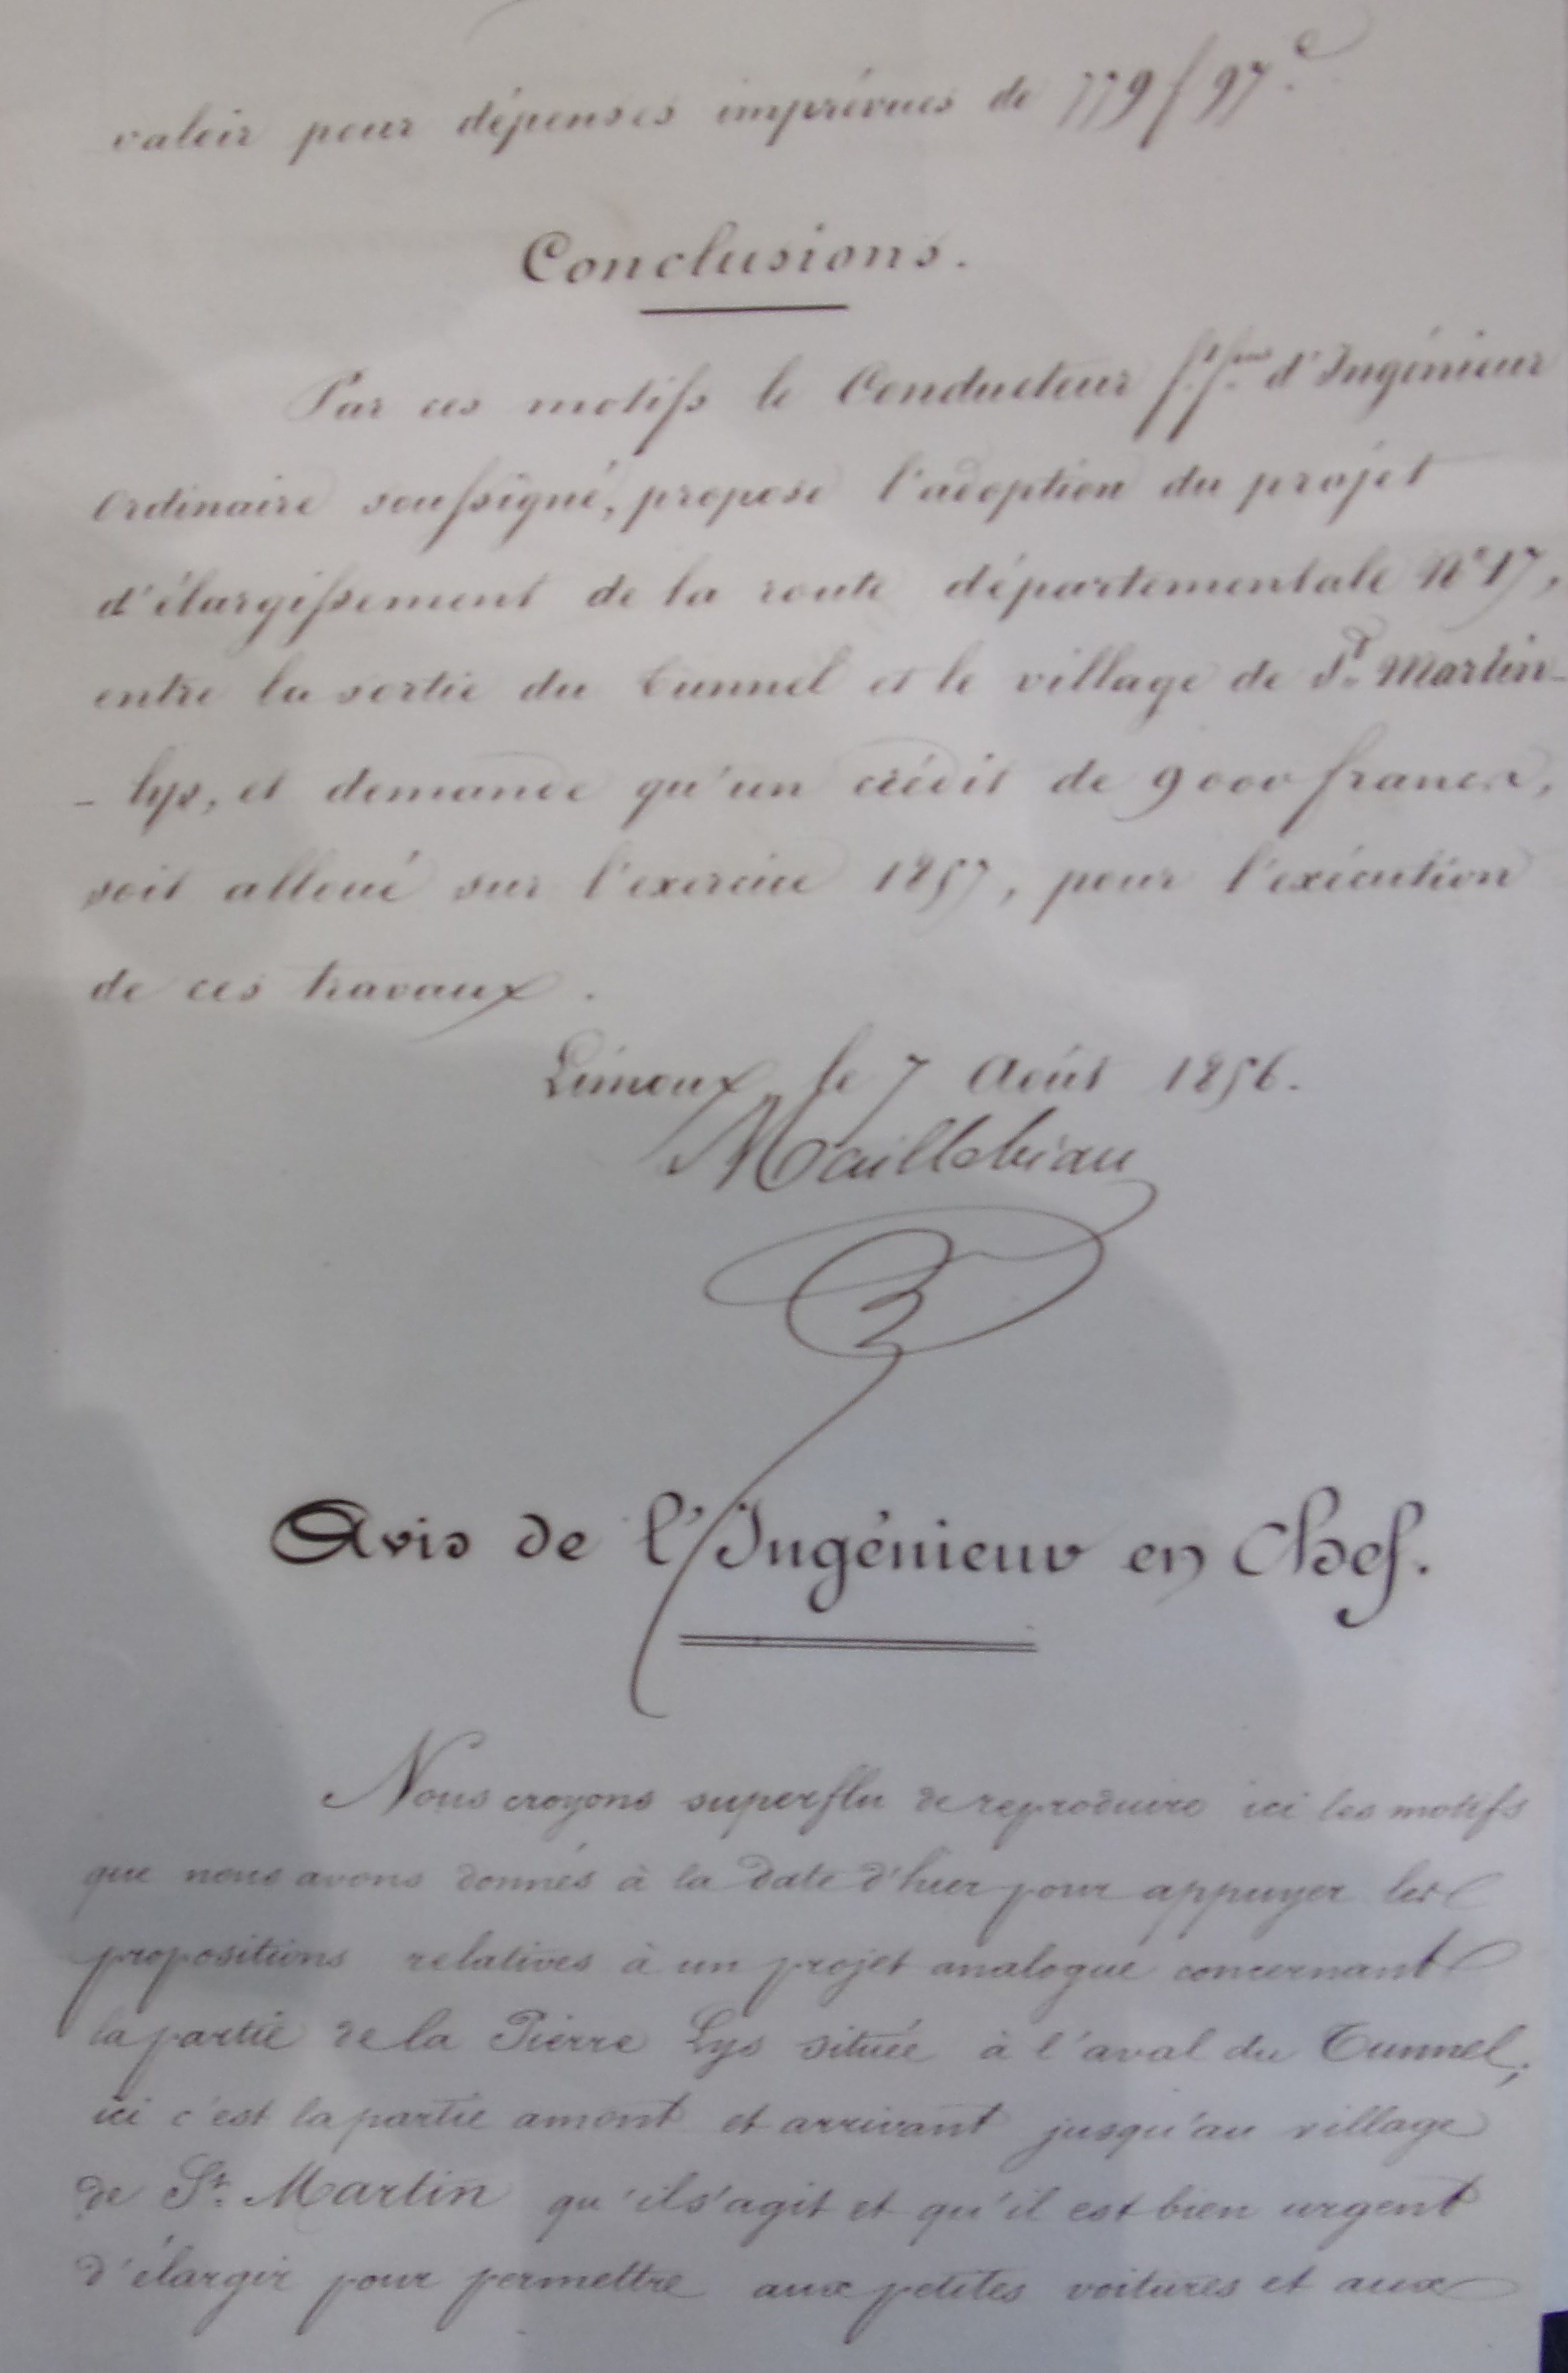 valoir pour dépenses imprévues de 779f 97c.
Conclusions.
Par ces motifs le Conducteur f.f.ons d'Ingénieur
Ordinaire soussigné, propose l'adoption du projet
d'élargissement de la route départementale N° 17,
entre la sortie du tunnel et le village de St. Martin-
- lys, et demande qu'un crédit de 9000 francs,
soit alloué sur l'exercice 1857, pour l'exécution
de ces travaux.
Limoux, le 7 Août 1856.
Maillebiau
Avis de l'Ingénieur en Chef.
Nous croyons superflu de reproduire ici les motifs
que nous avons donnés à la date d'hier pour appuyer les
propositions relatives à un projet analogue concernant
la partie de la Pierre Lys située à l'aval du Tunnel;
ici c'est la partie amont et arrivant jusqu'au village
de St. Martin qu'il s'agit et qu'il est bien urgent
d'élargir pour permettre aux petites voitures et aux